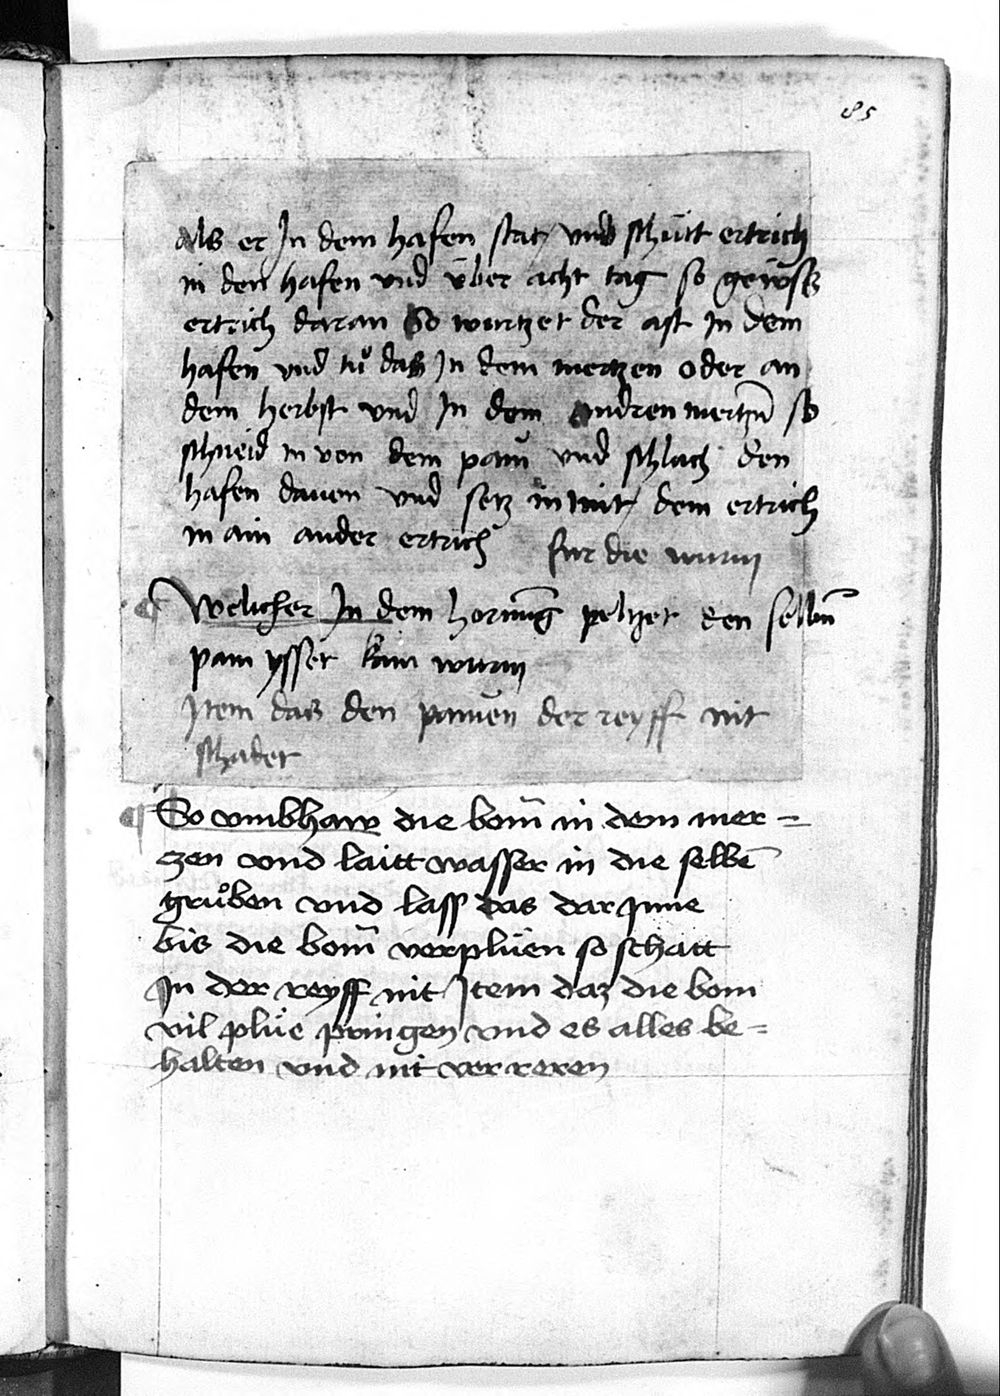 85
als er In dem hafen stat vnd schütt ertrich
in den hafen vnd über acht tag so geüss
ertrich daran So wurtzet der ast In dem
hafen vnd tuͦ daß In dem mertzen oder an
dem herbst vnd In dem andren mertzn̄ so
schneid in von dem pam̄ vnd schlach den
hafen dauen vnd setz in mit dem ertrich
in ain ander ertrich fur die wurm
¶ Welicher In dem hornūg peltzet den selbn̄
pam ysset kain wurm
Item daß den pamen̄ der reyff nit
schadet
¶ So vmbhaw die bom̄ in dem mer=
czen vnd laitt wasser in die selbē
gruͦben vnd lass das dar Inne
bis die bom̄ verplüen so schatt
In der reyff nit Item daz die bom
vil plüe pringen vnd es alles be=
halten vnd nit verreren